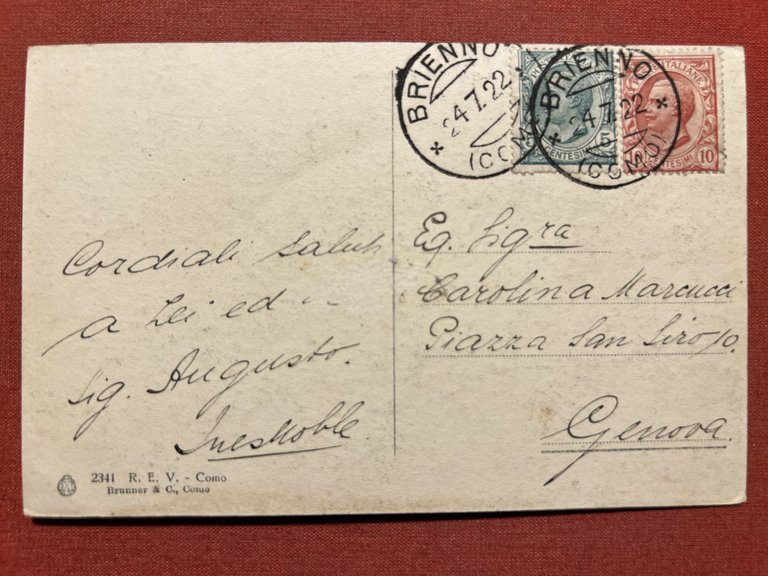 BRIENNO
24.7.22
(COMO)
BRIENNO
24.7.22
(COMO)
CENTESIMI 5
POSTE ITALIANE
10 CENTESIMI 10
Cordiali Saluti
a Lei ed
Sig. Augusto.
Eg. Sigra
Carolina Marcucci
Piazza San Siro
Genova
2341 R. E. V. - Como
Brunner & C., Como